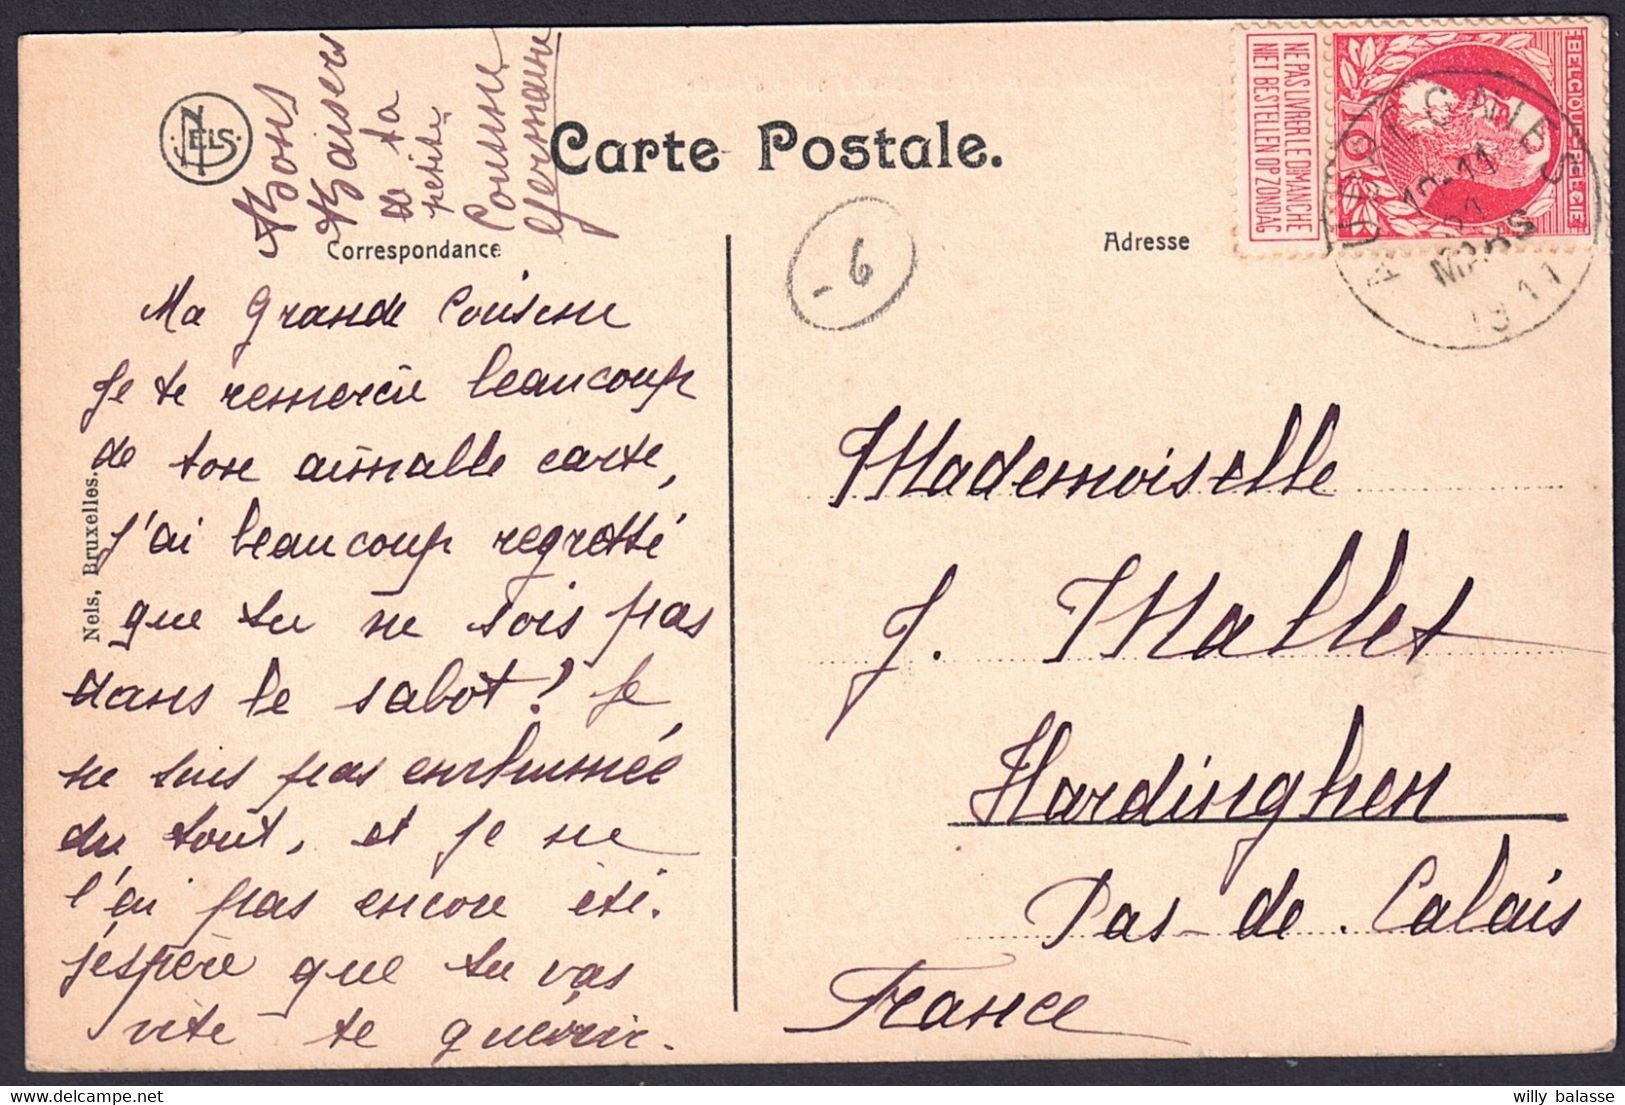 Bons
Baisers
de ta
petite
Cousine
Germaine
NELS.
Carte Postale.
Correspondance
Adresse
NE PAS LIVRER LE DIMANCHE
NIET BESTELLEN OP ZONDAG
BELGIQUE BELGIE
AUBRIGNIES
10-11
21
MARS
1911
- 6
Ma Grande Cousine
Je te remercie beaucoup
de ton aimalble carte,
j'ai beaucoup regretté
que tu ne sois pas
dans le sabot! Je
ne suis pas enrhumée
du tout, et je ne
l'ai pas encore été.
j'espère que tu vas
vite te guérir.
Nels, Bruxelles.
Mademoiselle
J. Mallet
Hardinghen
Pas-de-Calais
France
willy balasse